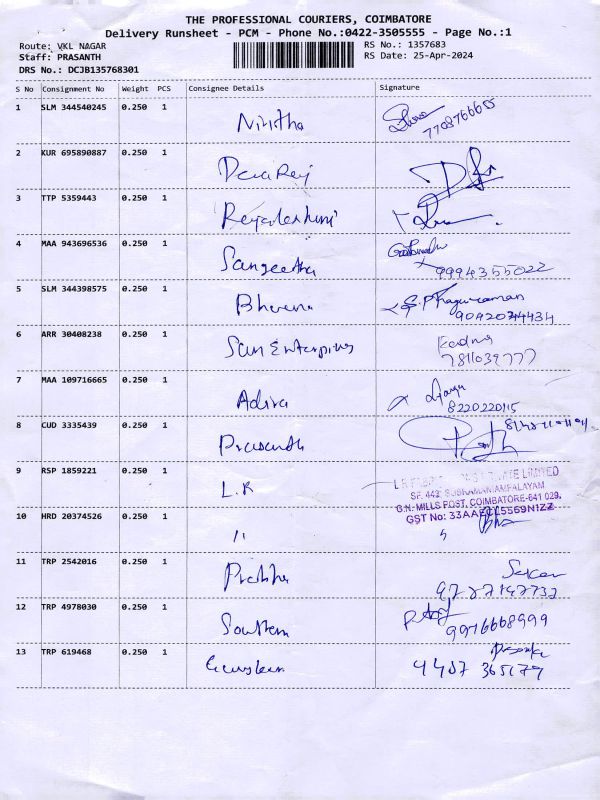 THE PROFESSIONAL COURIERS, COIMBATORE
Delivery Runsheet - PCM - Phone No.:0422-3505555 - Page No.:1
Route: VKL NAGAR
RS No.: 1357683
Staff: PRASANTH
RS Date: 25-Apr-2024
DRS No.: DCJB135768301
S No Consignment No Weight PCS Consignee Details Signature
1 SLM 344540245 0.250 1 Nivitha
7708766655
2 KUR 695890887 0.250 1 DevaRaj
3 TTP 5359443 0.250 1
4 MAA 943696536 0.250 1 Sangeetha
9994355022
5 SLM 344398575 0.250 1 Bhavana
9092034434
6 ARR 30408238 0.250 1 San Enterprises
7811039777
7 MAA 109716665 0.250 1 Adira
8220220115
8 CUD 3335439 0.250 1 Prasanth
9 RSP 1859221 0.250 1 L.R
PRIVATE LIMITED
SF. 443, SUBRAMANIAMPALAYAM
G.N. MILLS POST, COIMBATORE-641 029.
GST No: 33AAECL5569N1ZZ
10 HRD 20374526 0.250 1 "
11 TRP 2542016 0.250 1 Prabhu
12 TRP 4978030 0.250 1 Southern
9976668999
13 TRP 619468 0.250 1
4487 365179